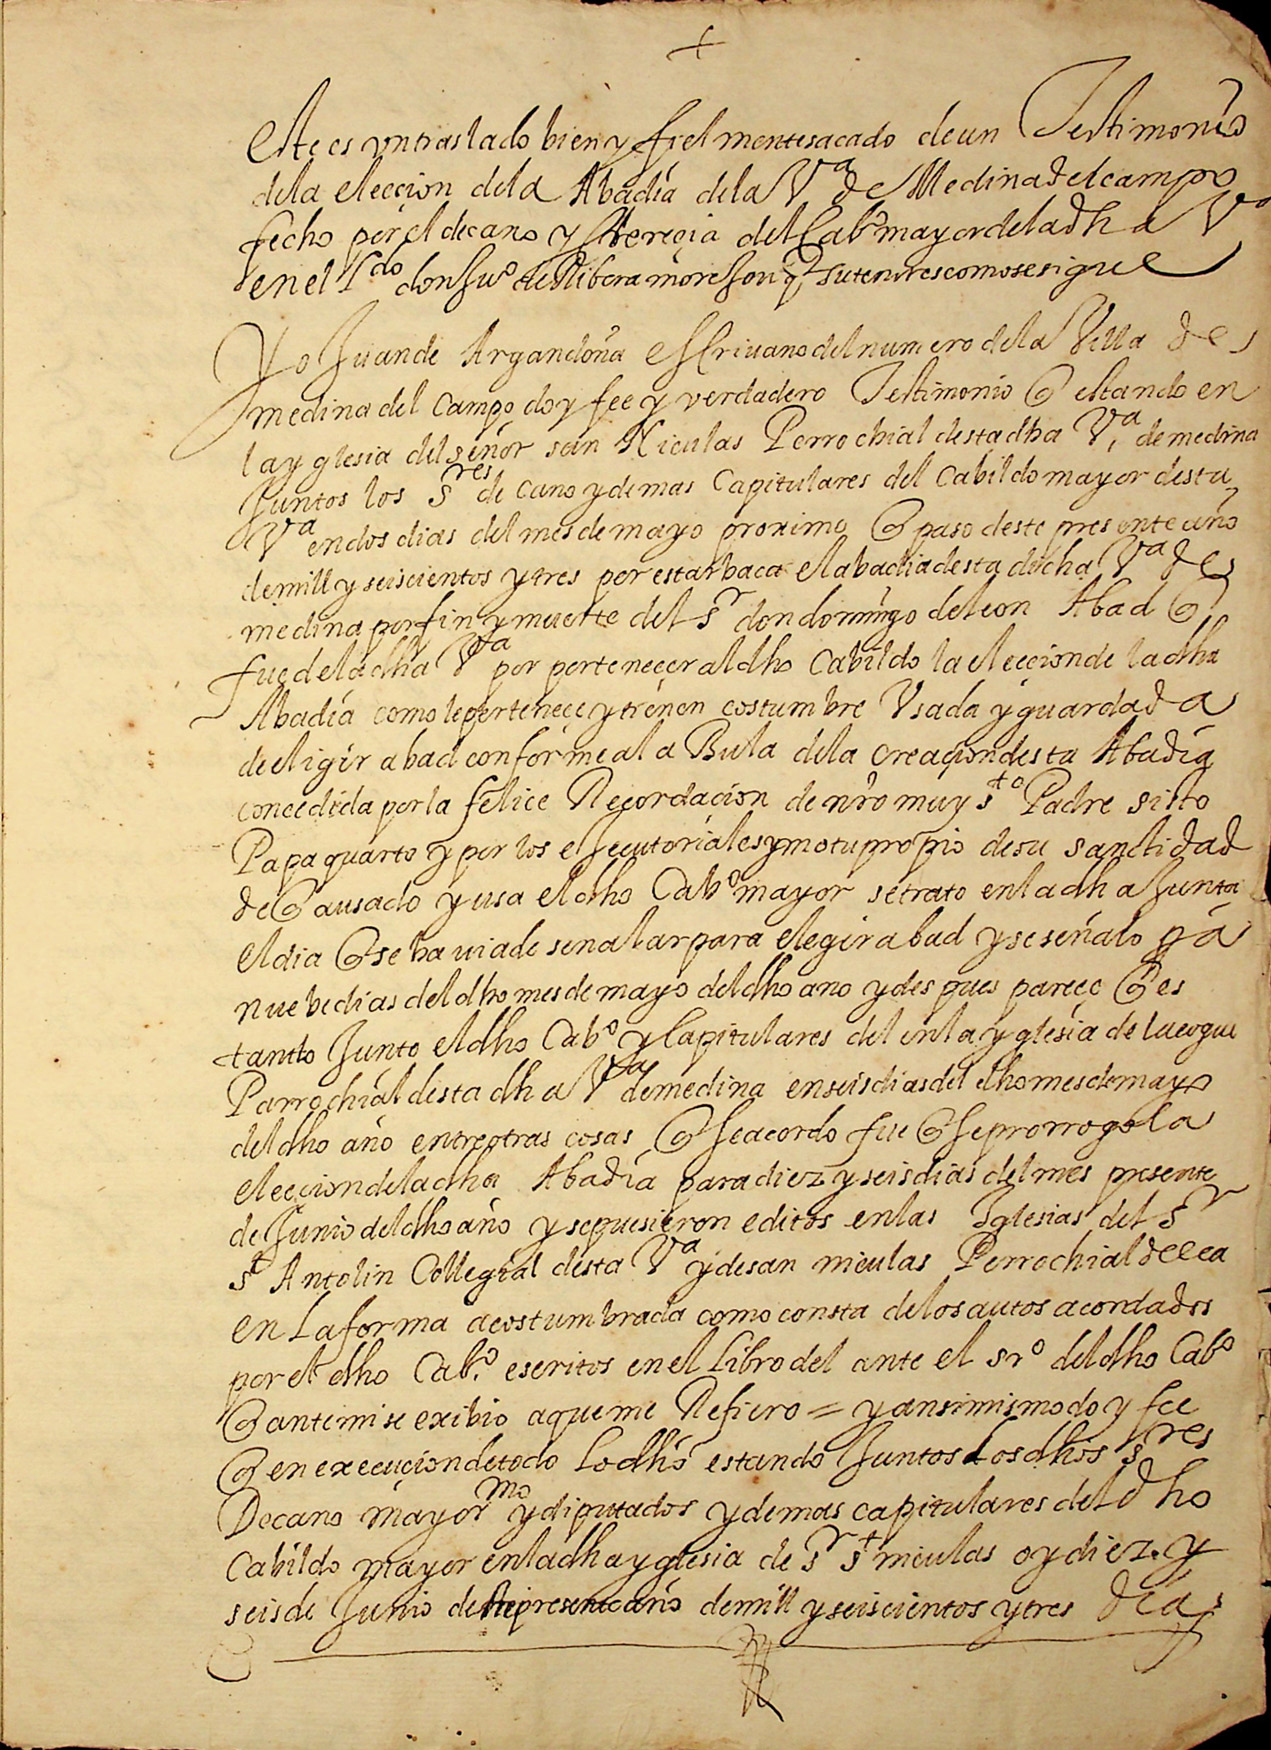 +
Este es un traslado bien y fielmente sacado de un Testimonio
de la eleccion de la Abadia de la Vª de Medina del campo
fecho por el decano y del Cabº mayor de la dha Vª
en el Ldo don Juº de Ribera su tenor es como se sigue
Yo Juan de Argandoña escrivano del numero de la Villa de
medina del campo doy fee y verdadero Testimonio q estando en
la yglesia del señor san Niculas Perrochial desta dha Vª de medina
Juntos los sres decano y demas Capitulares del Cabildo mayor desta
Vª en dos dias del mes de mayo proximo q paso deste presente año
de mill y seiscientos y tres por estar baca el abadia desta dicha Vª de
medina por fin y muerte del sr don domingo de leon Abad q
fue de la dha Vª por pertenecer al dho Cabildo la eleccion de la dha
Abadia como le perteneçe y tienen costumbre Usada y guardada
de eligir abad conforme a la Bula de la creaçion desta Abadia
concedida por la felice Recordacion de nro muy sto Padre sisto
Papa quarto y por los essecutoriales y motu propio de su sanctidad
de q a usado y usa el dho Cabº mayor se trato en la dha Junta
el dia q se havia de senalar para elegir abad y se señalo pª
nuebe dias del dho mes de mayo del dho ano y despues pareçe q es
tando Junto el dho Cabº y Capitulares del en la yglesia de
Parrochial desta dha Vª de medina en seis dias del dho mes de mayo
del dho año entre otras cosas q se acordo fue q se prorrogo la
eleccion de la dha Abadia para diez y seis dias del mes presente
de Junio del dho año y se pusieron editos en las Iglesias del Sr
st Antolin Collegial desta Vª y de san niculas Perrochial della
en La forma acostumbrada como consta de los autos acordados
por el dho Cabº escritos en el Libro del ante el srº del dho Cabº
q ante mi se exibio a que me Refiero = y ansimismo doy fee
q en execuçion de todo lo dho estando Juntos Los dhos sres
Decano mayormo y diputados y demas capitulares del dho
Cabildo mayor en la dha yglesia de sr st niculas oy diez y
seis de Junio deste presente año de mill y seiscientos y tres dias